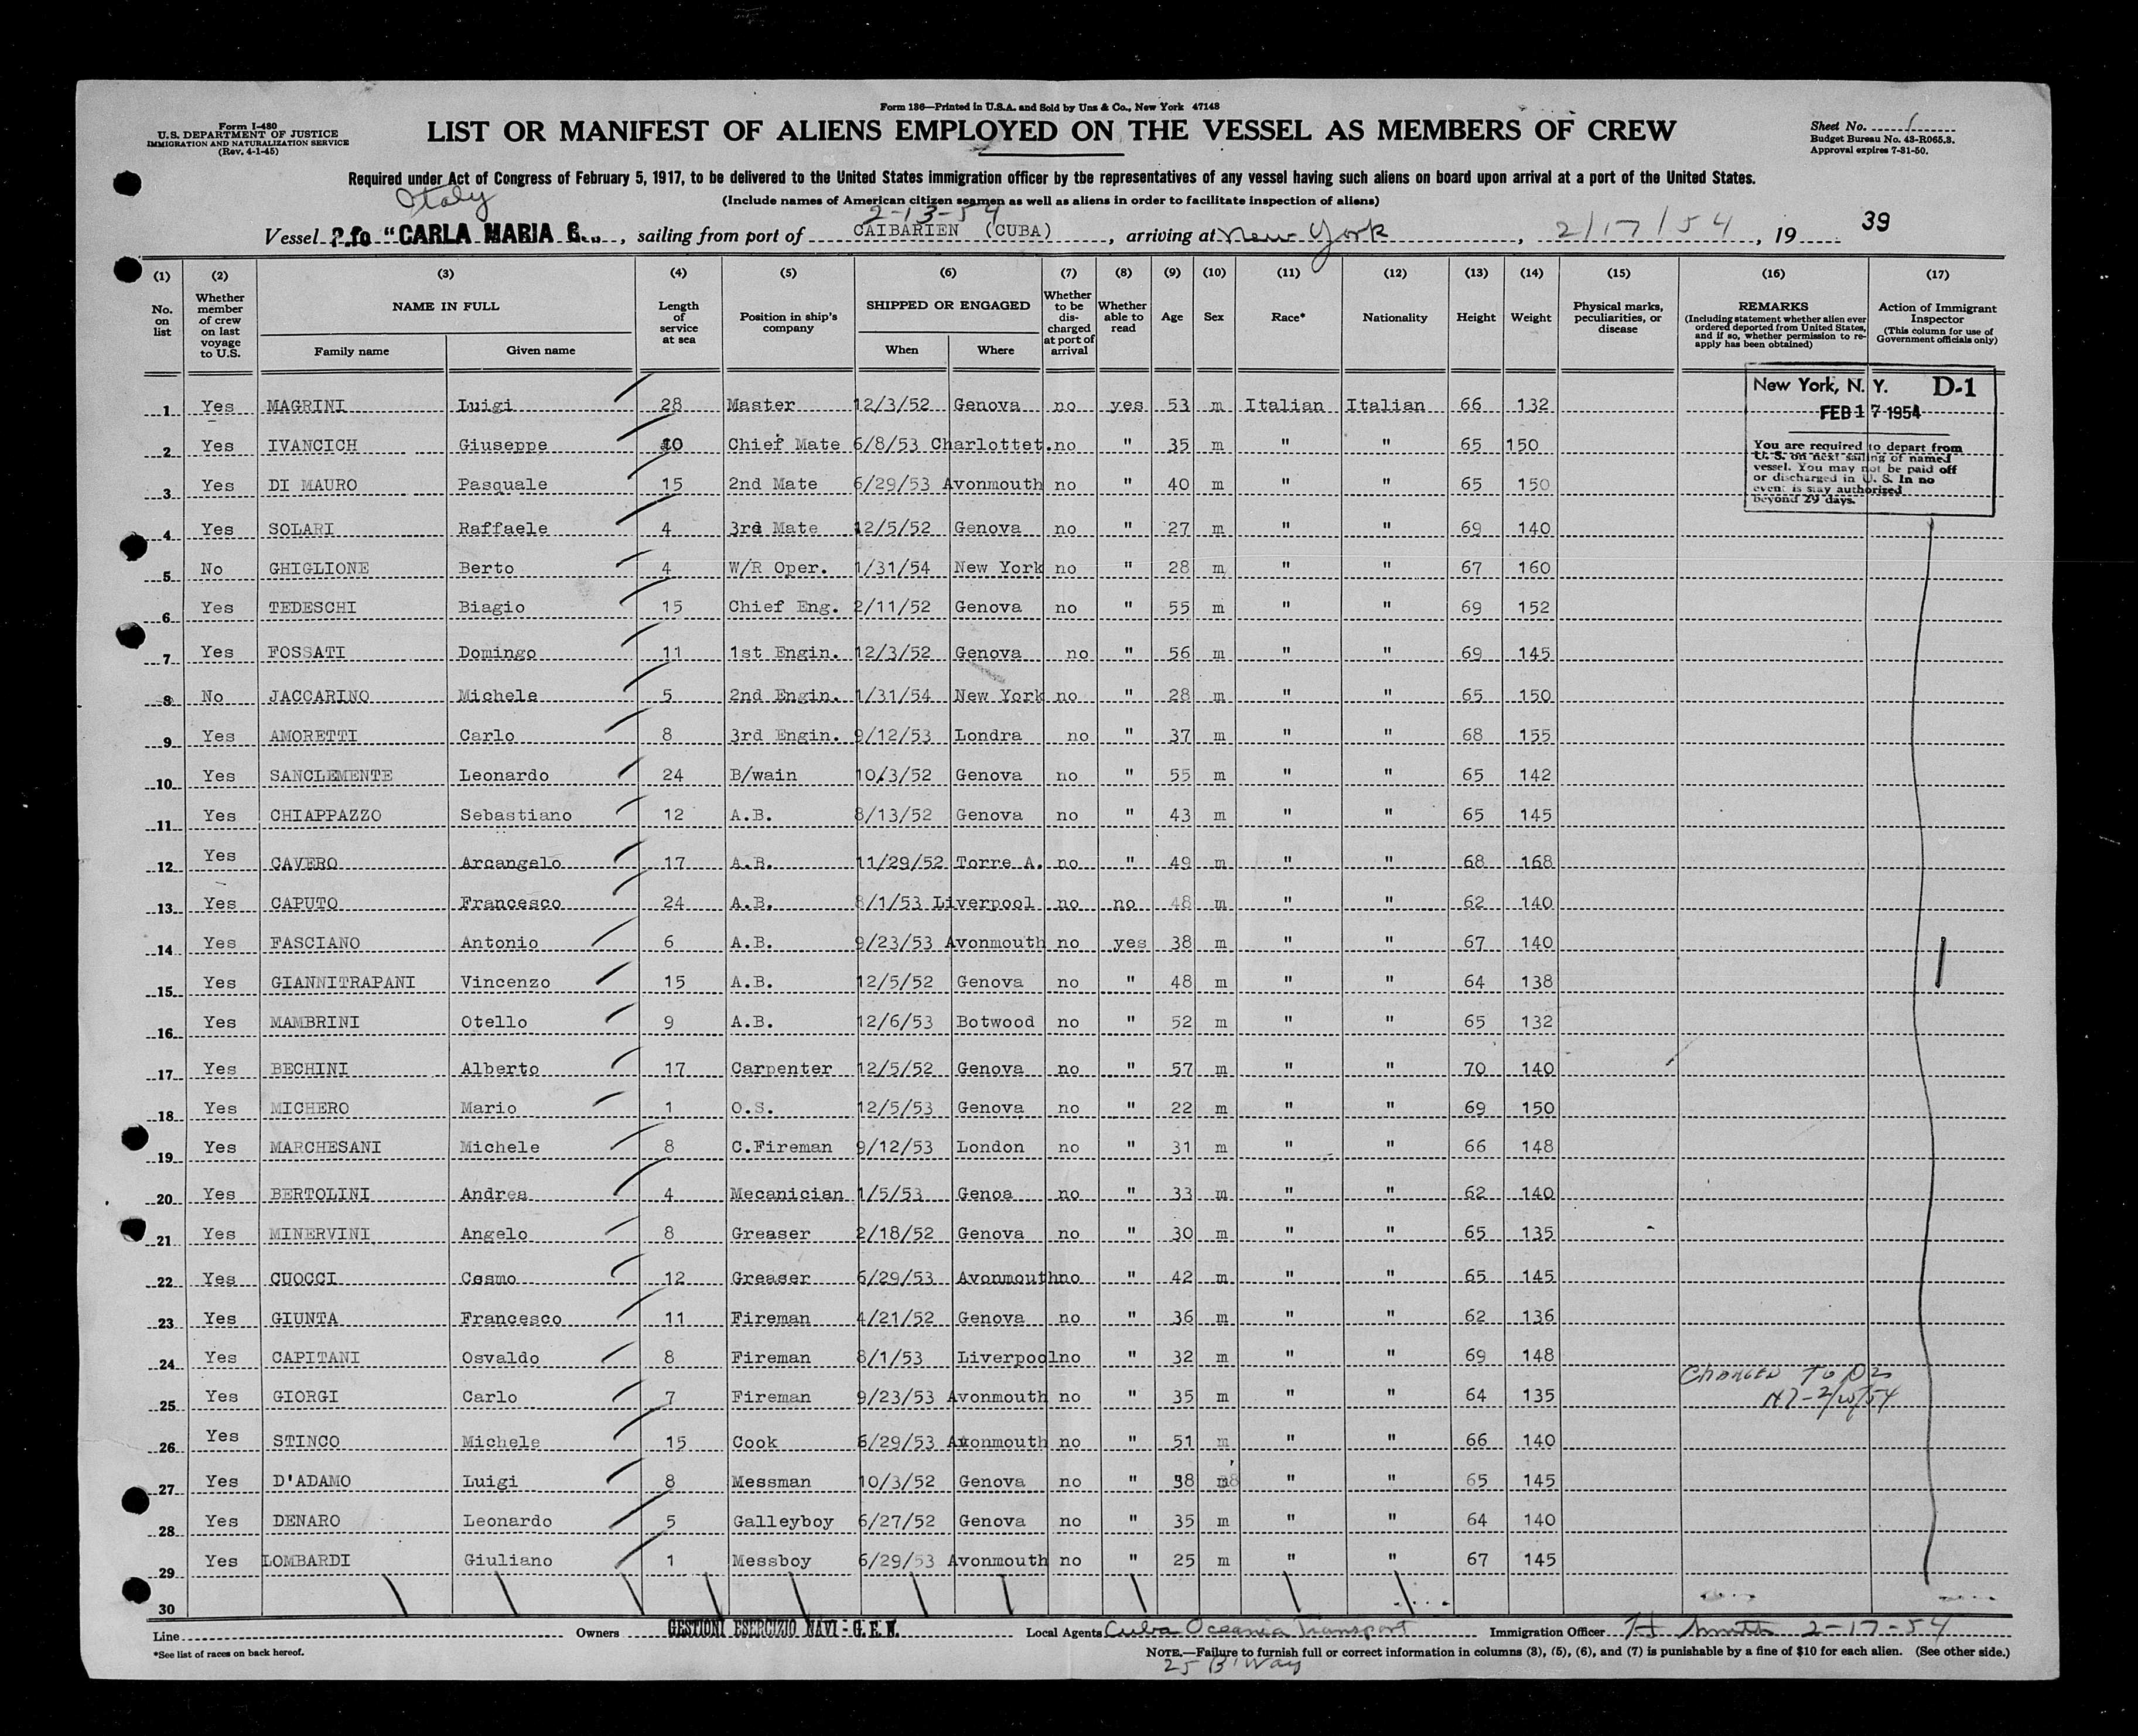 Form 136—Printed in U.S.A. and Sold by Unz & Co., New York 47148
Form I-480
U.S. DEPARTMENT OF JUSTICE
IMMIGRATION AND NATURALIZATION SERVICE
(Rev. 4-1-45)
LIST OR MANIFEST OF ALIENS EMPLOYED ON THE VESSEL AS MEMBERS OF CREW
Sheet No. 1
Budget Bureau No. 43-R065.3.
Approval expires 7-31-50.
Required under Act of Congress of February 5, 1917, to be delivered to the United States immigration officer by the representatives of any vessel having such aliens on board upon arrival at a port of the United States.
Italy
(Include names of American citizen seamen as well as aliens in order to facilitate inspection of aliens)
2-13-54
Vessel P.fo "CARLA MARIA G.", sailing from port of CAIBARIEN (CUBA), arriving at New York, 2/17/54, 19 39
(1) (2) (3) (4) (5) (6) (7) (8) (9) (10) (11) (12) (13) (14) (15) (16) (17)
No. on list
Whether member of crew on last voyage to U.S.
NAME IN FULL
Family name Given name
Length of service at sea
Position in ship's company
SHIPPED OR ENGAGED
When Where
Whether to be discharged at port of arrival
Whether able to read
Age Sex Race* Nationality Height Weight
Physical marks, peculiarities, or disease
REMARKS
(Including statement whether alien ever ordered deported from United States, and if so, whether permission to re-apply has been obtained)
Action of Immigrant Inspector
(This column for use of Government officials only)
New York, N. Y. D-1
FEB 17 1954
You are required to depart from
U. S. on next sailing of named
vessel. You may not be paid off
or discharged in U. S. In no
event is stay authorized
beyond 29 days.
1 Yes MAGRINI Luigi 28 Master 12/3/52 Genova no yes 53 m Italian Italian 66 132
2 Yes IVANCICH Giuseppe 10 Chief Mate 6/8/53 Charlottet. no " 35 m " " 65 150
3 Yes DI MAURO Pasquale 15 2nd Mate 6/29/53 Avonmouth no " 40 m " " 65 150
4 Yes SOLARI Raffaele 4 3rd Mate 12/5/52 Genova no " 27 m " " 69 140
5 No GHIGLIONE Berto 4 W/R Oper. 1/31/54 New York no " 28 m " " 67 160
6 Yes TEDESCHI Biagio 15 Chief Eng. 2/11/52 Genova no " 55 m " " 69 152
7 Yes FOSSATI Domingo 11 1st Engin. 12/3/52 Genova no " 56 m " " 69 145
8 No JACCARINO Michele 5 2nd Engin. 1/31/54 New York no " 28 m " " 65 150
9 Yes AMORETTI Carlo 8 3rd Engin. 9/12/53 Londra no " 37 m " " 68 155
10 Yes SANCLEMENTE Leonardo 24 B/wain 10/3/52 Genova no " 55 m " " 65 142
11 Yes CHIAPPAZZO Sebastiano 12 A.B. 8/13/52 Genova no " 43 m " " 65 145
12 Yes CAVERO Arcangelo 17 A.B. 11/29/52 Torre A. no " 49 m " " 68 168
13 Yes CAPUTO Francesco 24 A.B. 8/1/53 Liverpool no no 48 m " " 62 140
14 Yes FASCIANO Antonio 6 A.B. 9/23/53 Avonmouth no yes 38 m " " 67 140
15 Yes GIANNITRAPANI Vincenzo 15 A.B. 12/5/52 Genova no " 48 m " " 64 138
16 Yes MAMBRINI Otello 9 A.B. 12/6/53 Botwood no " 52 m " " 65 132
17 Yes BECHINI Alberto 17 Carpenter 12/5/52 Genova no " 57 m " " 70 140
18 Yes MICHERO Mario 1 O.S. 12/5/53 Genova no " 22 m " " 69 150
19 Yes MARCHESANI Michele 8 C.Fireman 9/12/53 London no " 31 m " " 66 148
20 Yes BERTOLINI Andrea 4 Mecanician 1/5/53 Genoa no " 33 m " " 62 140
21 Yes MINERVINI Angelo 8 Greaser 2/18/52 Genova no " 30 m " " 65 135
22 Yes CUOCCI Cosmo 12 Greaser 6/29/53 Avonmouth no " 42 m " " 65 145
23 Yes GIUNTA Francesco 11 Fireman 4/21/52 Genova no " 36 m " " 62 136
24 Yes CAPITANI Osvaldo 8 Fireman 8/1/53 Liverpool no " 32 m " " 69 148
CHANGED TO D2
25 Yes GIORGI Carlo 7 Fireman 9/23/53 Avonmouth no " 35 m " " 64 135
26 Yes STINCO Michele 15 Cook 6/29/53 Avonmouth no " 51 m " " 66 140
27 Yes D'ADAMO Luigi 8 Messman 10/3/52 Genova no " 38 m " " 65 145
28 Yes DENARO Leonardo 5 Galleyboy 6/27/52 Genova no " 35 m " " 64 140
29 Yes LOMBARDI Giuliano 1 Messboy 6/29/53 Avonmouth no " 25 m " " 67 145
30
Line Owners GESTIONI ESERCIZIO NAVI - G.E.N. Local Agents Cuba Oceania Transport Immigration Officer H Smith 2-17-54
*See list of races on back hereof.
NOTE.—Failure to furnish full or correct information in columns (3), (5), (6), and (7) is punishable by a fine of $10 for each alien. (See other side.)
25 B'Way